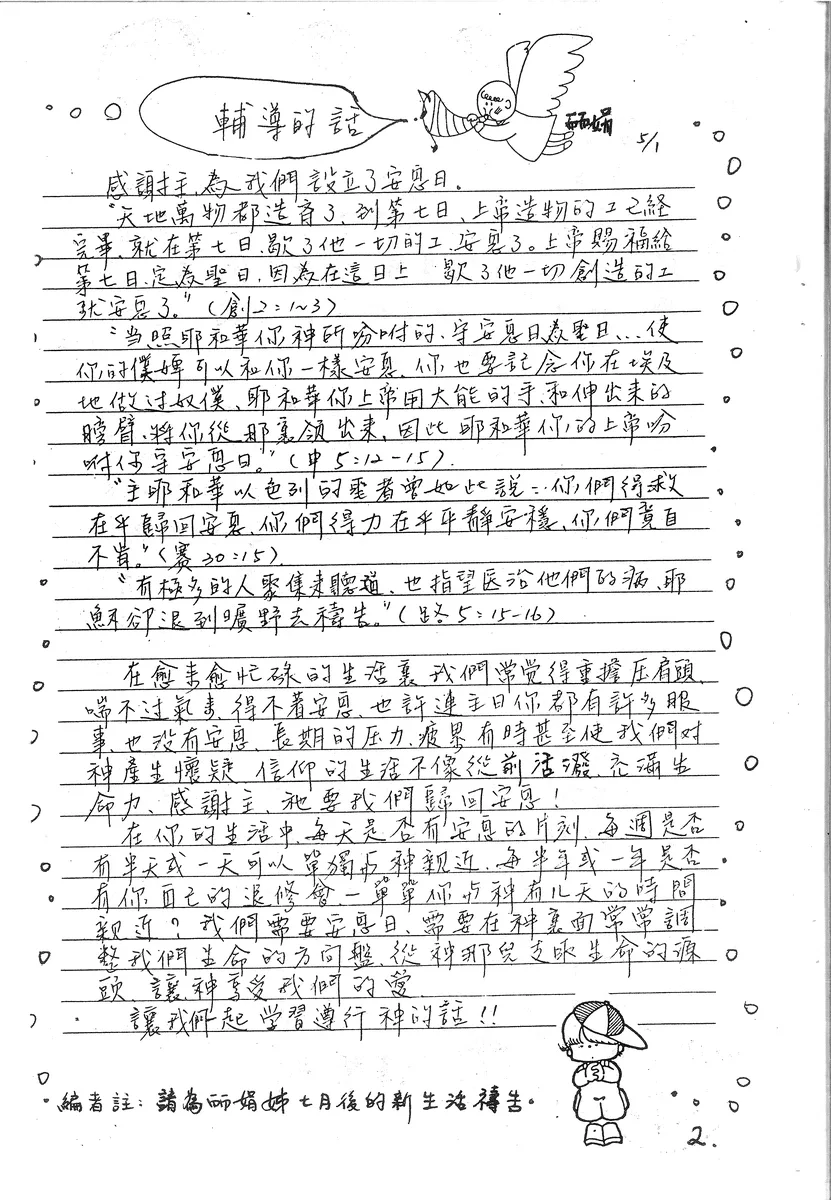 輔導的話
丽娟
5/1
感謝主,為我們設立了安息日。
"天地萬物都造齊了,到第七日、上帝造物的工已經
完畢,就在第七日,歇了他一切的工,安息了。上帝賜福給
第七日,定為聖日,因為在這日上 歇了他一切創造的工
就安息了。"(創2:1~3)
"当照耶和華你神所吩咐的、守安息日為聖日,...使
你的僕婢可以和你一樣安息,你也要記念你在埃及
地做过奴僕、耶和華你上帝用大能的手,和伸出來的
膀臂,將你從那裏領出來,因此耶和華你的上帝吩
咐你守安息日。"(申5:12-15).
"主耶和華以色列的聖者曾如此說:你們得救
在乎歸回安息,你們得力在乎平靜安穩,你們竟自
不肯。"(賽30:15).
"有極多的人聚集來聽道,也指望医治他們的病,耶
穌卻退到曠野去禱告。"(路5:15-16)
在愈来愈忙碌的生活裏我們常觉得重擔压肩頭,
喘不过氣来,得不着安息,也許連主日你都有許多服
事,也沒有安息、長期的压力,疲累有時甚至使我們对
神產生懷疑,信仰的生活不像從前活潑,充滿生
命力、感謝主,祂要我們歸回安息!
在你的生活中,每天是否有安息的片刻,每週是否
有半天或一天可以單獨与神親近,每半年或一年是否
有你自己的退修會,一單單你与神有几天的時間
親近?我們需要安息日、需要在神裏面常常調
整我們生命的方向盤,從神那兒支取生命的源
頭,讓神享受我們的愛,
讓我們一起学習遵行神的話!!
編者註:請為丽娟姊七月後的新生活禱告.
2.